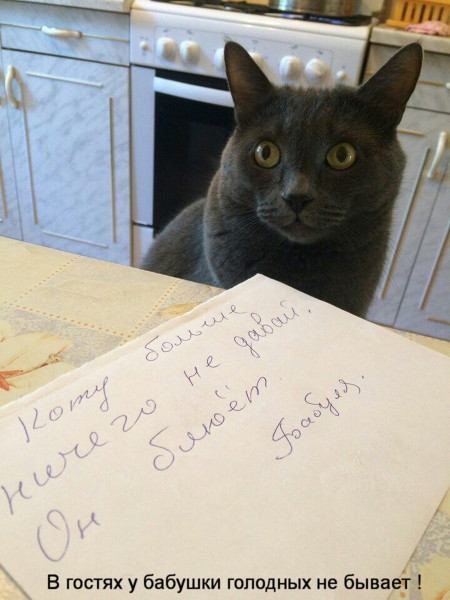 Коту больше
ничего не давай.
Он блюёт
Бабуля.
В гостях у бабушки голодных не бывает !